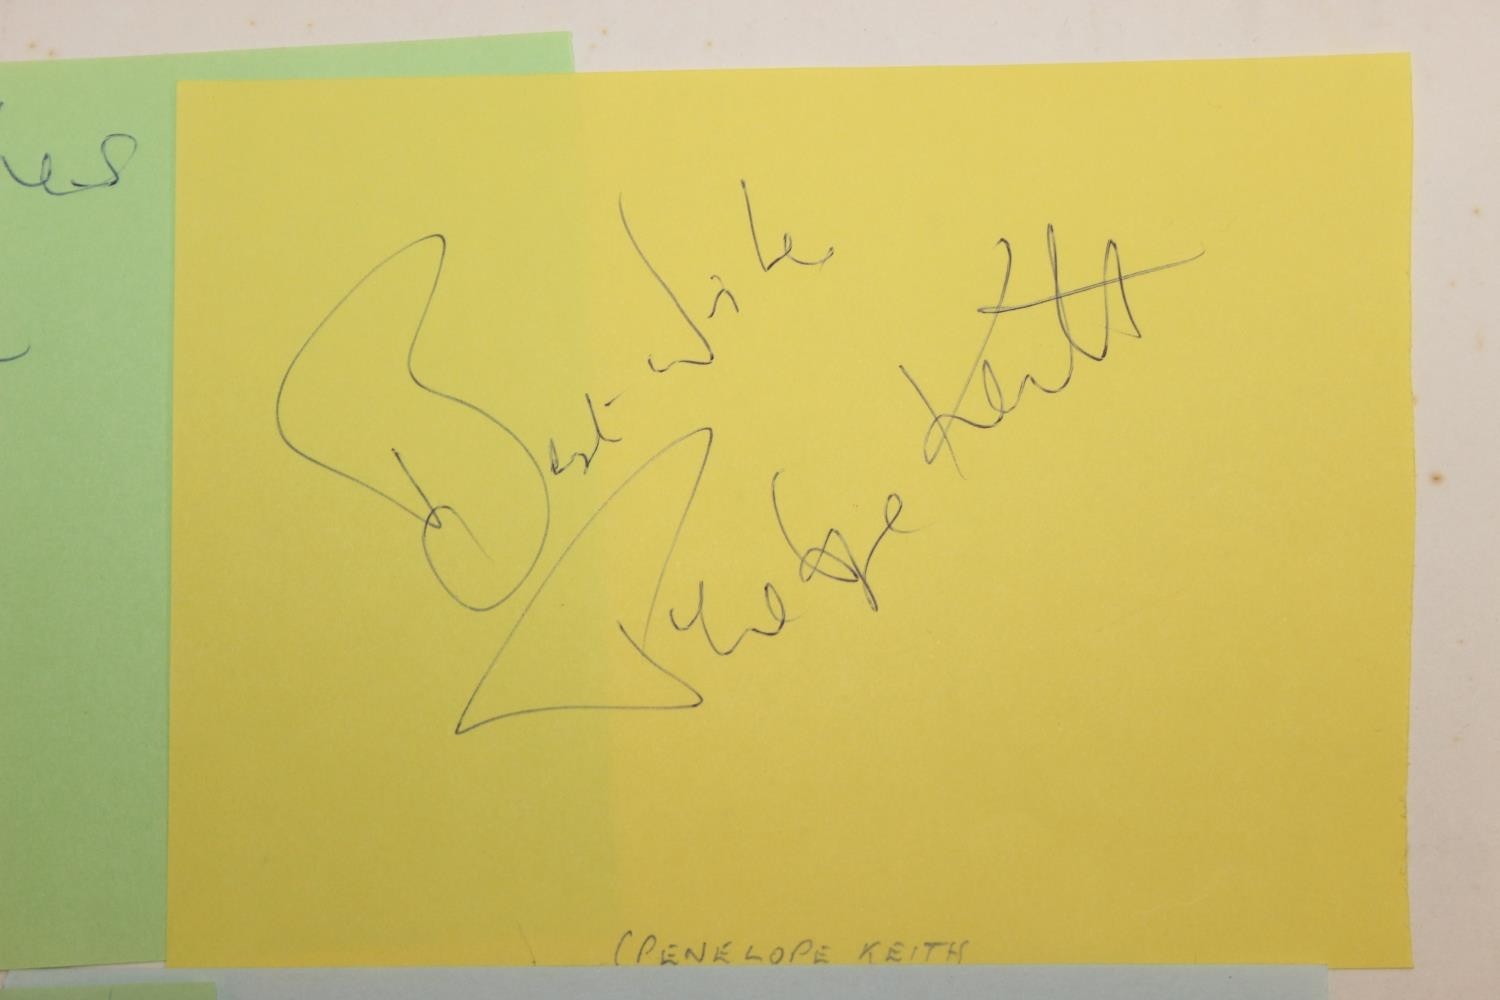 Best Wishes
Penelope Keith
(PENELOPE KEITH